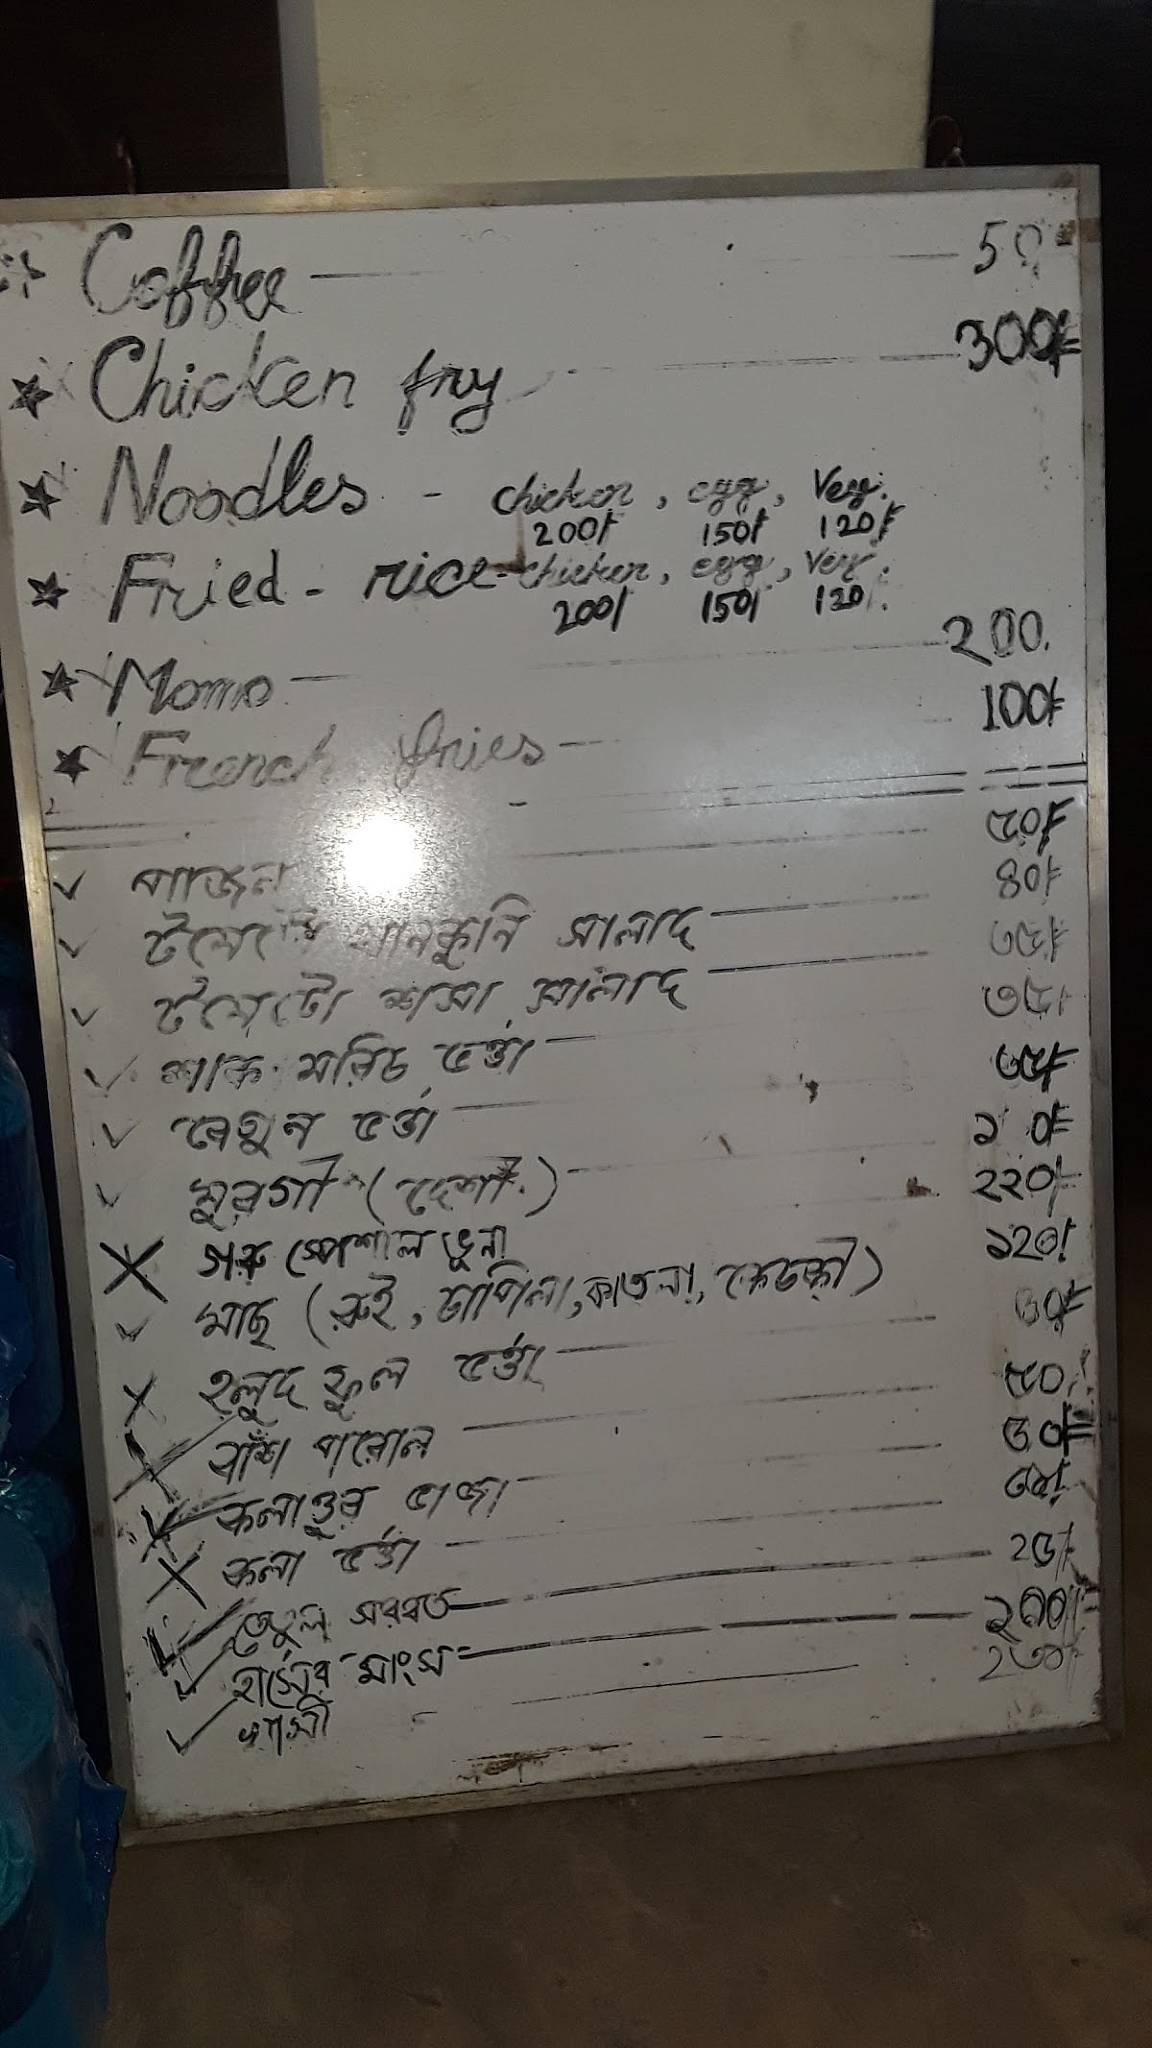 Coffee 50
Chicken fry 300/=
Noodles - chicken, egg, Veg.
200/ 150/ 120/
Fried - rice - chicken, egg, Veg.
200/ 150/ 120/
Momo 200
French fries 100/=
পাজন ৫০/=
টমেটো থানকুনি সালাদ ৪০/=
টমেটো শসা সালাদ ৩৫/
শাক মরিচ ভর্ত্তা ৩৫/
বেগুন ভর্ত্তা ৩৫/=
মুরগী (দেশী)
গরু স্পেশাল ভুনা ২২০/
মাছ (রুই, চাপিলা, কাতলা, কেচকী) ১২০/
হলুদ ফুল ভর্ত্তা
বাঁশ পারোল ৫০/
কলাথুর ভাজা
কলা ভর্ত্তা
তেতুল সরবত
হাসের মাংস
খাসী